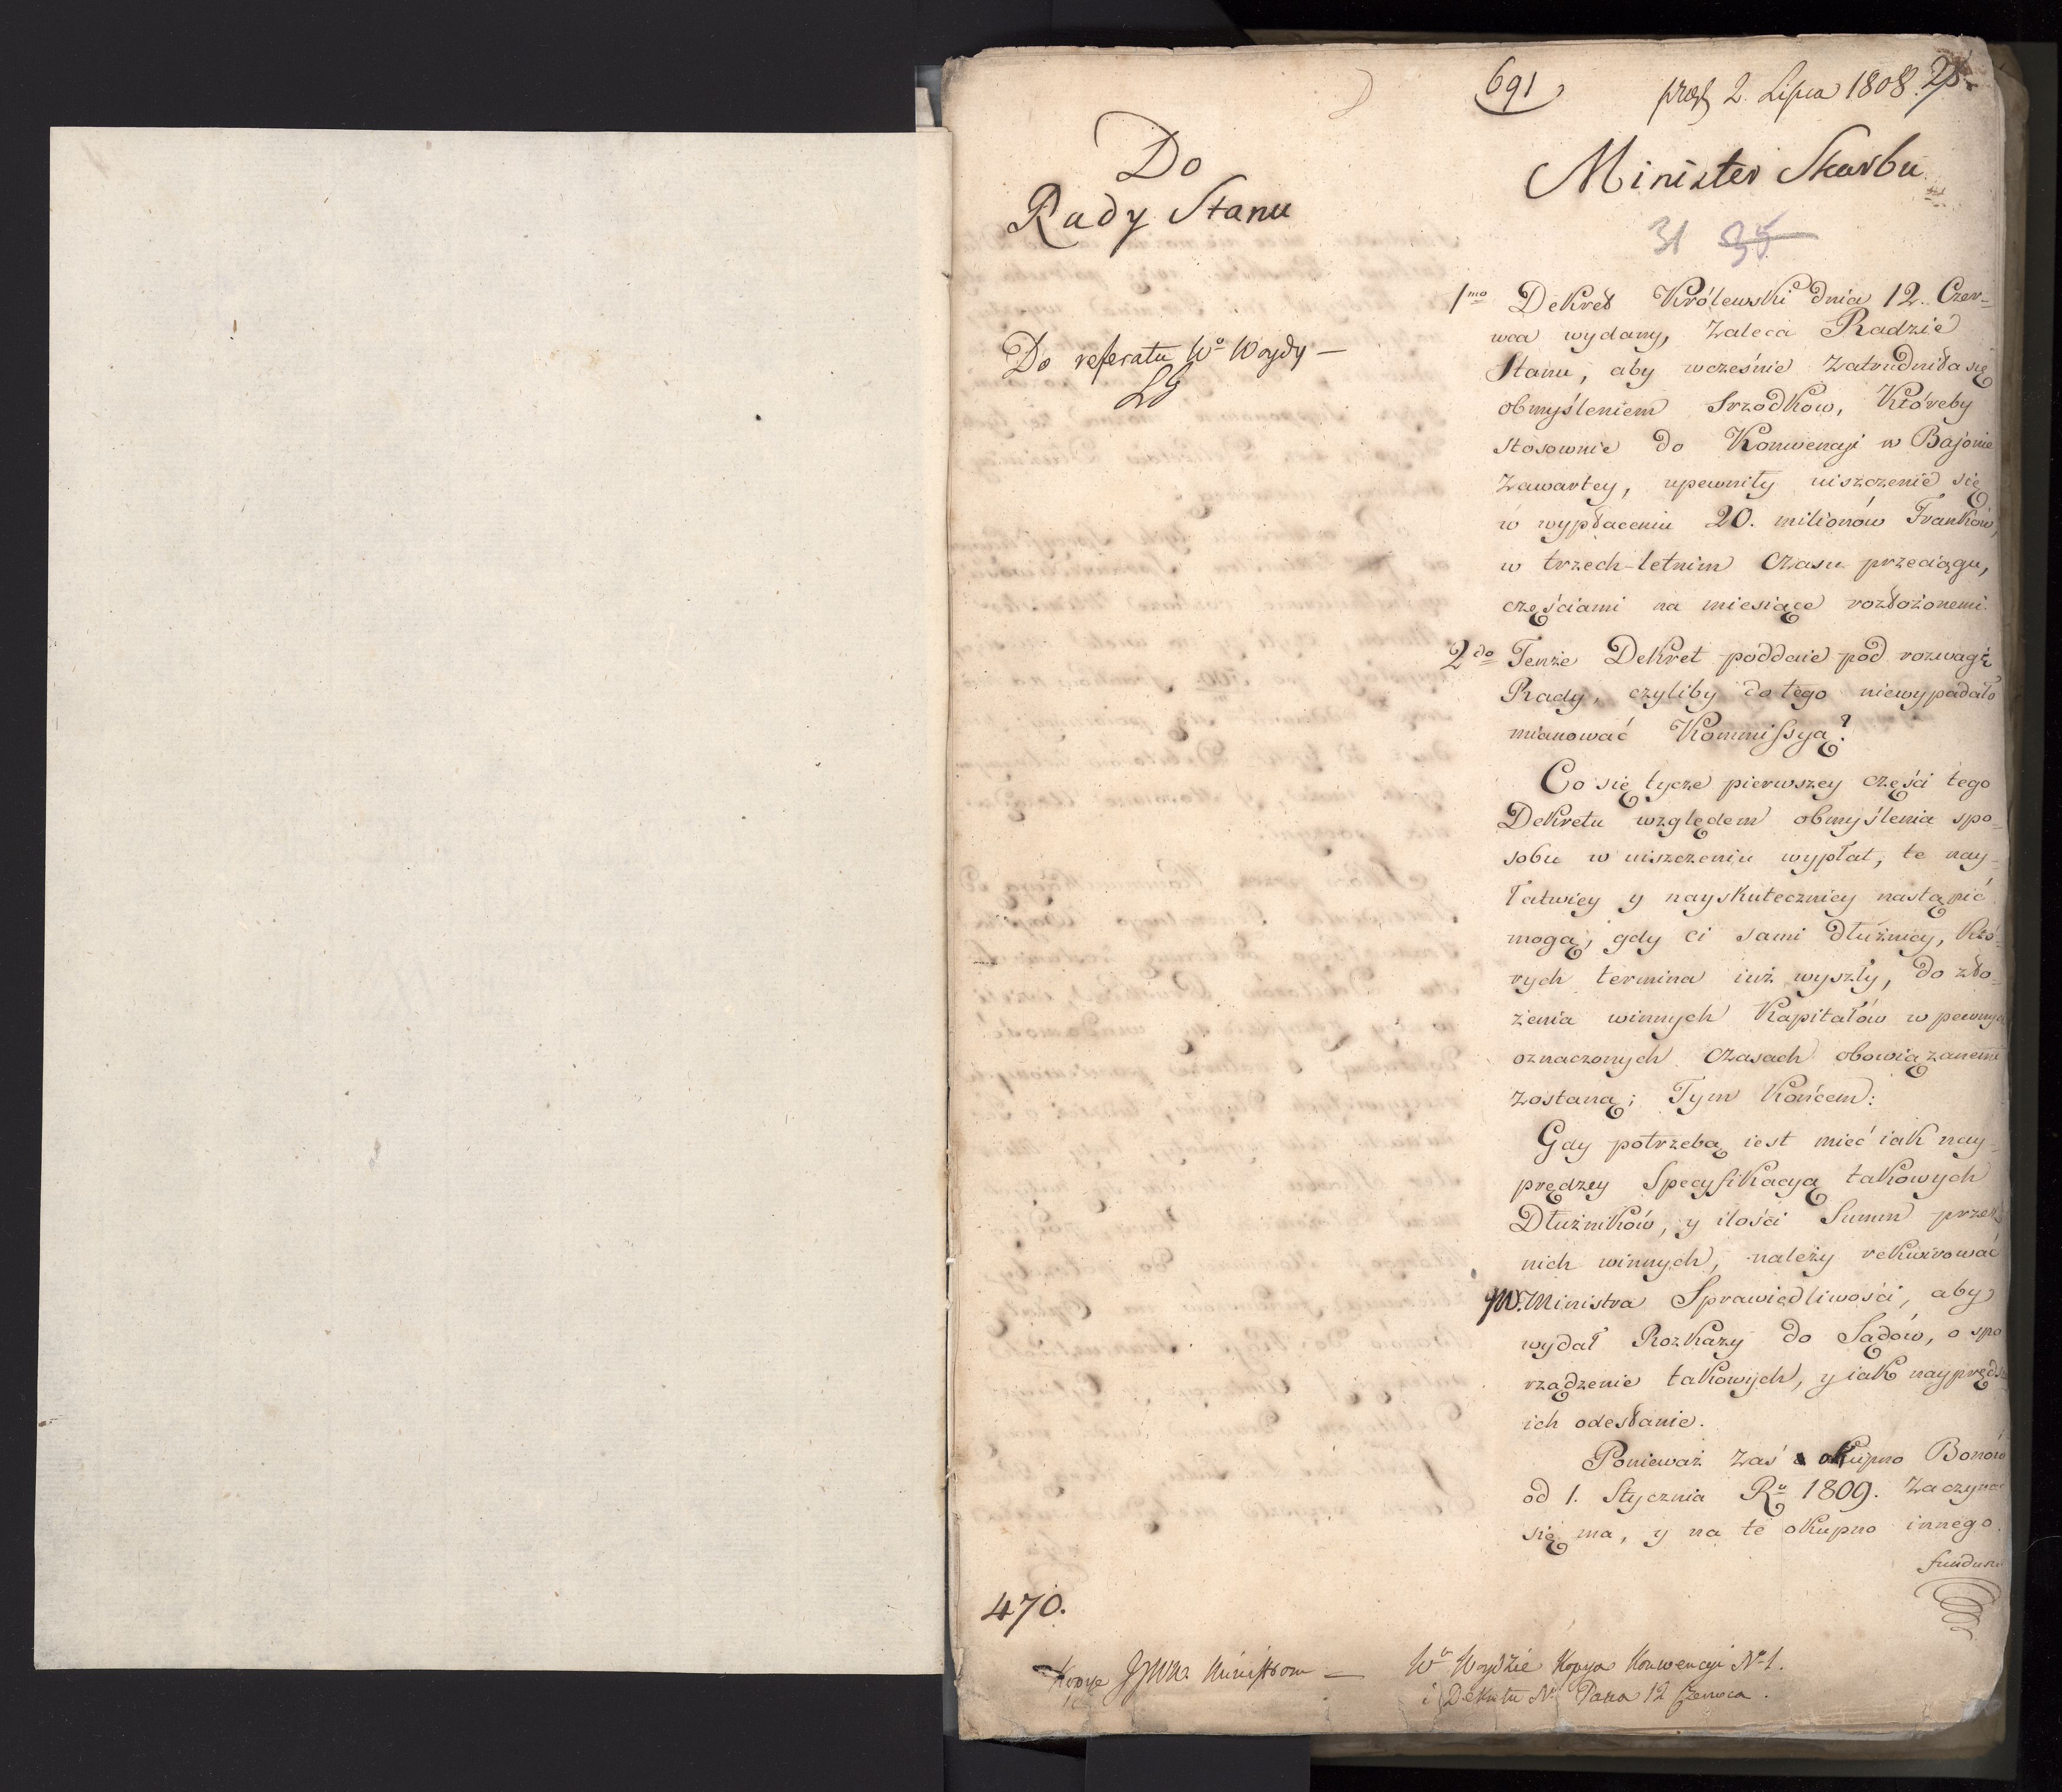 691
2. Lipca 1808.
Do
Rady Stanu
Minister Skarbu
31 35
Do referatu Wo Woydy —
1mo Dekret Królewski dnia 12. Czer-
wca wydany, zaleca Radzie
Stanu, aby wcześnie zatrudniła się
obmyśleniem Srzodków, któreby
stosownie do Konwencyi w Bajonie
zawartey, upewniły uiszczenie się
w wypłaceniu 20. milionów Franków,
w trzech-letnim czasu przeciągu,
częściami na miesiące rozłożonemi.
2do Tenże Dekret poddaie pod rozwagę
Rady, czyliby do tego niewypadało
mianować Kommissyą?
Co się tycze pierwszey części tego
Dekretu względem obmyślenia spo-
sobu w uiszczeniu wypłat, te nay-
łatwiey y nayskuteczniey nastąpić
mogą, gdy ci sami dłużnicy, któ-
rych termina iuż wyszły, do zło-
żenia winnych Kapitałów w pewnych
oznaczonych czasach obowiązanemi
zostaną; Tym końcem:
Gdy potrzebą iest mieć iak nay-
prędzey Specyfikacyą takowych
Dłużników, y ilości Summ przez
nich winnych, należy rekwirować
JW. Ministra Sprawiedliwości, aby
wydał Rozkazy do Sądów, o spo
rządzenie takowych, y iak nayprędsze
ich odesłanie.
Ponieważ zaś okupno Bonów
od 1. Stycznia Ru 1809. zaczynać
się ma, y na te okupno innego
fundusz
470.
Kopje JJWW. Ministrom —
Wu Woydzie Kopya Konwencyi No 1.
i Dekretu N. Pana 12 Czerwca.